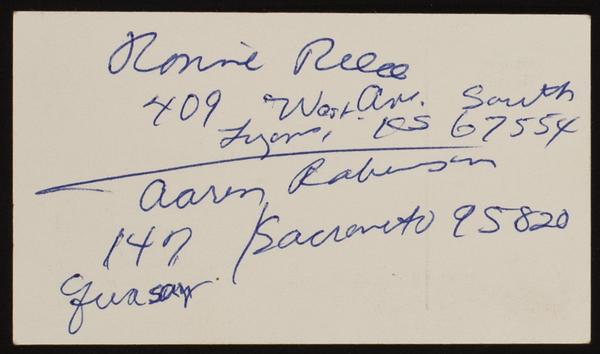 Ronnie Reece
409 West Ave. South
Lyons, KS 67554
Aaron Robinson
147 / Sacramento 95820
Quasar